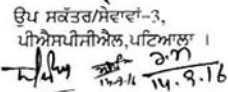 ਉਪ ਸਕੱਤਰ/ਸੇਵਾਵਾਂ-3,
ਪੀਐਸਪੀਸੀਐਲ,ਪਟਿਆਲਾ ।
14.9.16